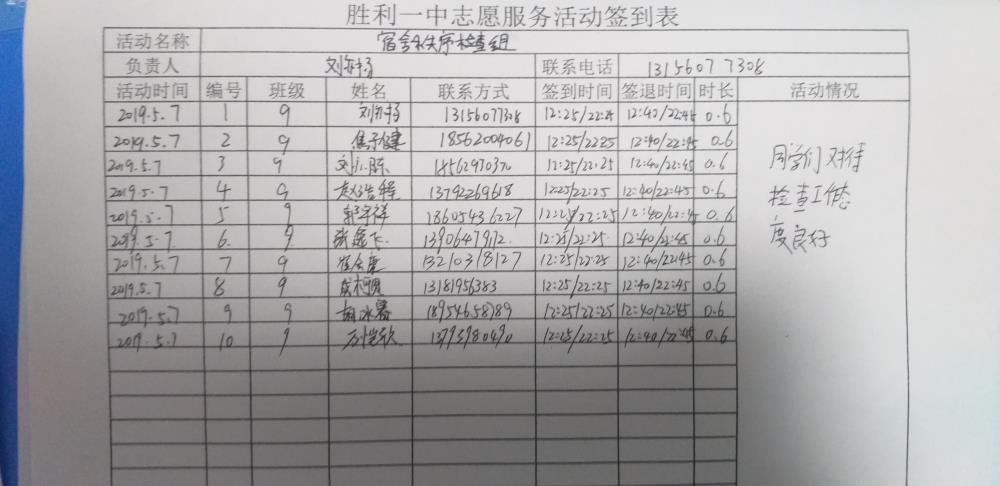 胜利一中志愿服务活动签到表
活动名称 宿舍秩序检查组
负责人 联系电话 13156077308
活动时间 编号 班级 姓名 联系方式 签到时间 签退时间 时长 活动情况
2019.5.7 1 9 13156077308 12:25/22:25 12:40/22:45 0.6
2019.5.7 2 9 18562004061 12:25/22:25 12:40/22:45 0.6
2019.5.7 3 9 18562970370 12:25/22:25 12:40/22:45 0.6
2019.5.7 4 9 13792269618 12:25/22:25 12:40/22:45 0.6
2019.5.7 5 9 18605436227 12:25/22:25 12:40/22:45 0.6
2019.5.7 6. 9 12:25/22:25 12:40/22:45 0.6
2019.5.7 7 9 13210318127 12:25/22:25 12:40/22:45 0.6
2019.5.7 8 9 13181956383 12:25/22:25 12:40/22:45 0.6
2019.5.7 9 9 18954658789 12:25/22:25 12:40/22:45 0.6
2019.5.7 10 9 12:25/22:25 12:40/22:45 0.6
同学们对待
检查工作态
度良好